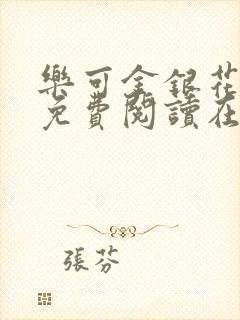 樂可金銀花
免費閱讀在
張芬